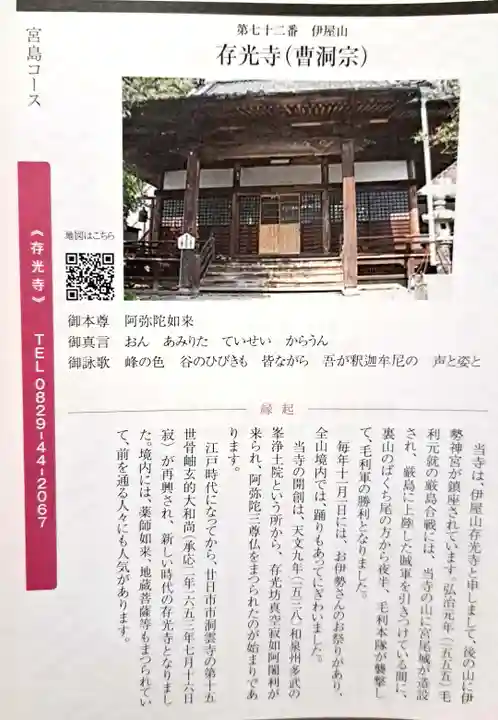 第七十二番　伊屋山
存光寺（曹洞宗）
宮島コース
地図はこちら
《存光寺》　TEL 0829-44-2067
御本尊　阿弥陀如来
御真言　おん　あみりた　ていせい　からうん
御詠歌　峰の色　谷のひびきも　皆ながら　吾が釈迦牟尼の　声と姿と
縁起
当寺は、伊屋山存光寺と申しまして、後の山に伊
勢神宮が鎮座されています。弘治元年（一五五五）毛
利元就の厳島合戦には、当寺の山に宮尾城が造設
され、厳島に上陸した賊軍を引きつけている間に、
裏山のばくち尾の方から夜半、毛利本隊が襲撃し
て、毛利軍の勝利となりました。
毎年十一月一日には、お伊勢さんのお祭りがあり、
全山境内では、踊りもあってにぎわいました。
当寺の開創は、天文九年（一五三八）和泉州多武の
峯浄土院という所から、存光坊真空寂如阿闍利が
来られ、阿弥陀三尊仏をまつられたのが始まりであ
ります。
江戸時代になってから、廿日市市洞雲寺の第十五
世骨岫玄的大和尚（承応二年一六五三年七月十六日
寂）が再興され、新しい時代の存光寺となりまし
た。境内には、薬師如来、地蔵菩薩等もまつられてい
て、前を通る人々にも人気があります。